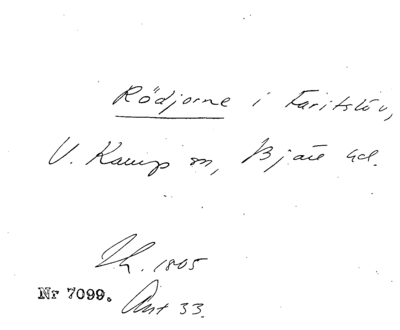 Rödjorne i Faritslöv,
V. Karup sn, Bjäre hd.
Lh. 1805
Nr 7099. Avst 33.